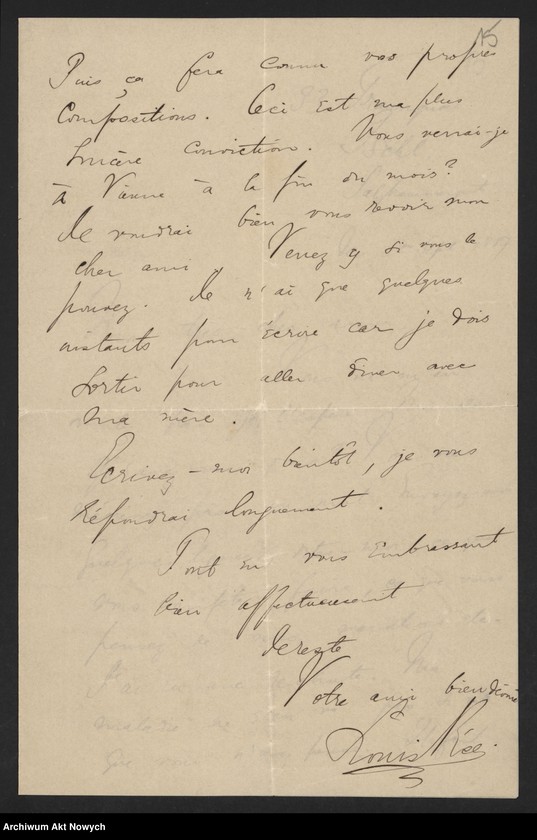 15
Puis ça fera connu vos propres
Compositions. Ceci est ma plus
sincère conviction. Vous verrai-je
à Vienne à la fin du mois?
Je voudrai bien vous revoir mon
cher ami. Venez y si vous le
pouvez. Je n'ai que quelques
instants pour écrire car je dois
sortir pour aller dîner avec
ma mère.
Ecrivez-moi bientôt, je vous
répondrai longuement.
Tout en vous embrassant
bien affectueusement
je reste
Votre ami bien dévoué
Louis Rée.
Archiwum Akt Nowych